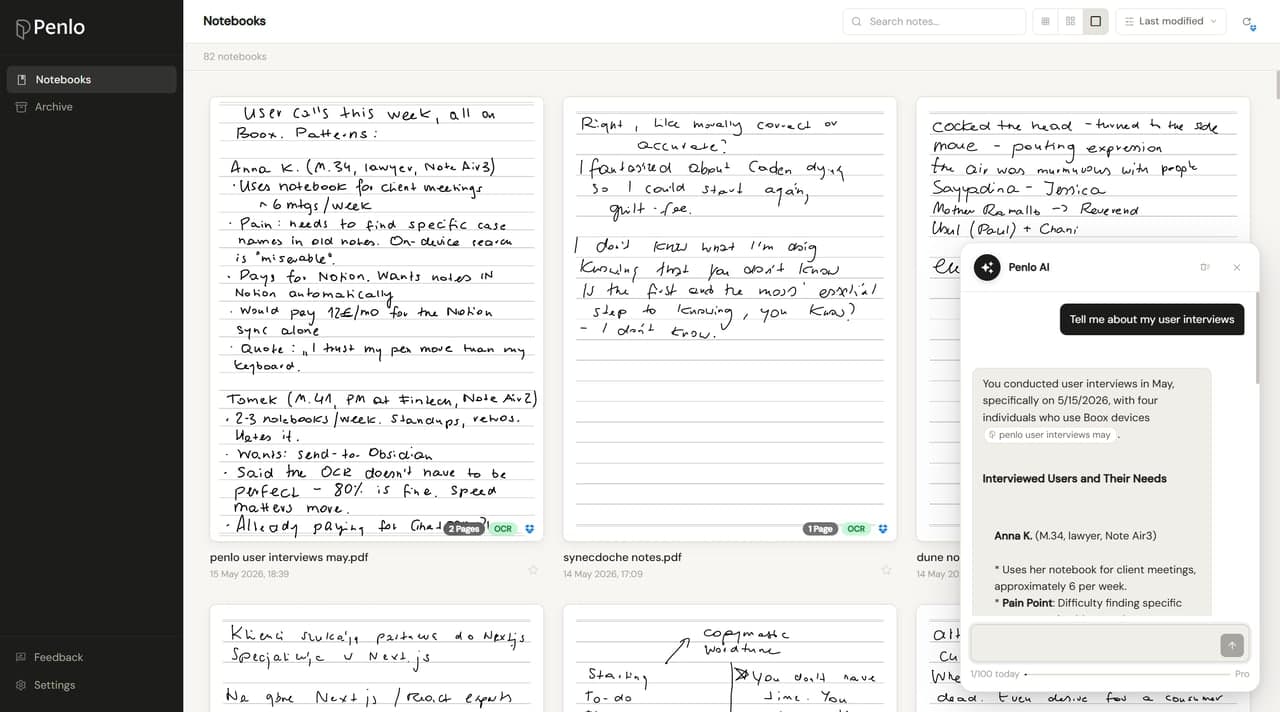 Penlo
Notebooks
Archive
Feedback
Settings
Notebooks
Search notes...
Last modified
82 notebooks
User calls this week, all on
Boox. Patterns:
Anna K. (M.34, lawyer, Note Air3)
· Uses notebook for client meetings
~ 6 mtgs/week
· Pain: needs to find specific case
names in old notes. On-device search
is "miserable".
· Pays for Notion. Wants notes IN
Notion automatically
· Would pay 12€/mo for the Notion
sync alone
· Quote: „I trust my pen more than my
keyboard."
Tomek (M.41, PM at Fintech, Note Air2)
· 2-3 notebooks/week. Standups, retros.
Hates it.
· Wants: send-to-Obsidian
· Said the OCR doesn't have to be
perfect - 80% is fine. Speed
matters more.
· Already paying for
2 Pages
OCR
penlo user interviews may.pdf
15 May 2026, 18:39
Right, like morally correct or
accurate?
I fantasized about Caden dying
so I could start again,
guilt-free.
I don't know what I'm doing
Knowing that you don't know
Is the first and the most essential
step to knowing, you know?
- I don't know.
1 Page
OCR
synecdoche notes.pdf
14 May 2026, 17:09
cocked the head - turned to the side
moue - pouting expression
the air was murmurous with people
Sayyadina - Jessica
Mother Ramallo -> Reverend
Usul (Paul) + Chani
dune no
14 May 20
Klienci szukają partnera do Next.js
Specjaliści w Next.js
Next js / react experts
copymatic
wordtune
Starting
To-do
You don't have
time. You
dead. Even desire for a consumer
Penlo AI
Tell me about my user interviews
You conducted user interviews in May,
specifically on 5/15/2026, with four
individuals who use Boox devices
penlo user interviews may .
Interviewed Users and Their Needs
Anna K. (M.34, lawyer, Note Air3)
* Uses her notebook for client meetings,
approximately 6 per week.
* Pain Point: Difficulty finding specific
1/100 today
Pro